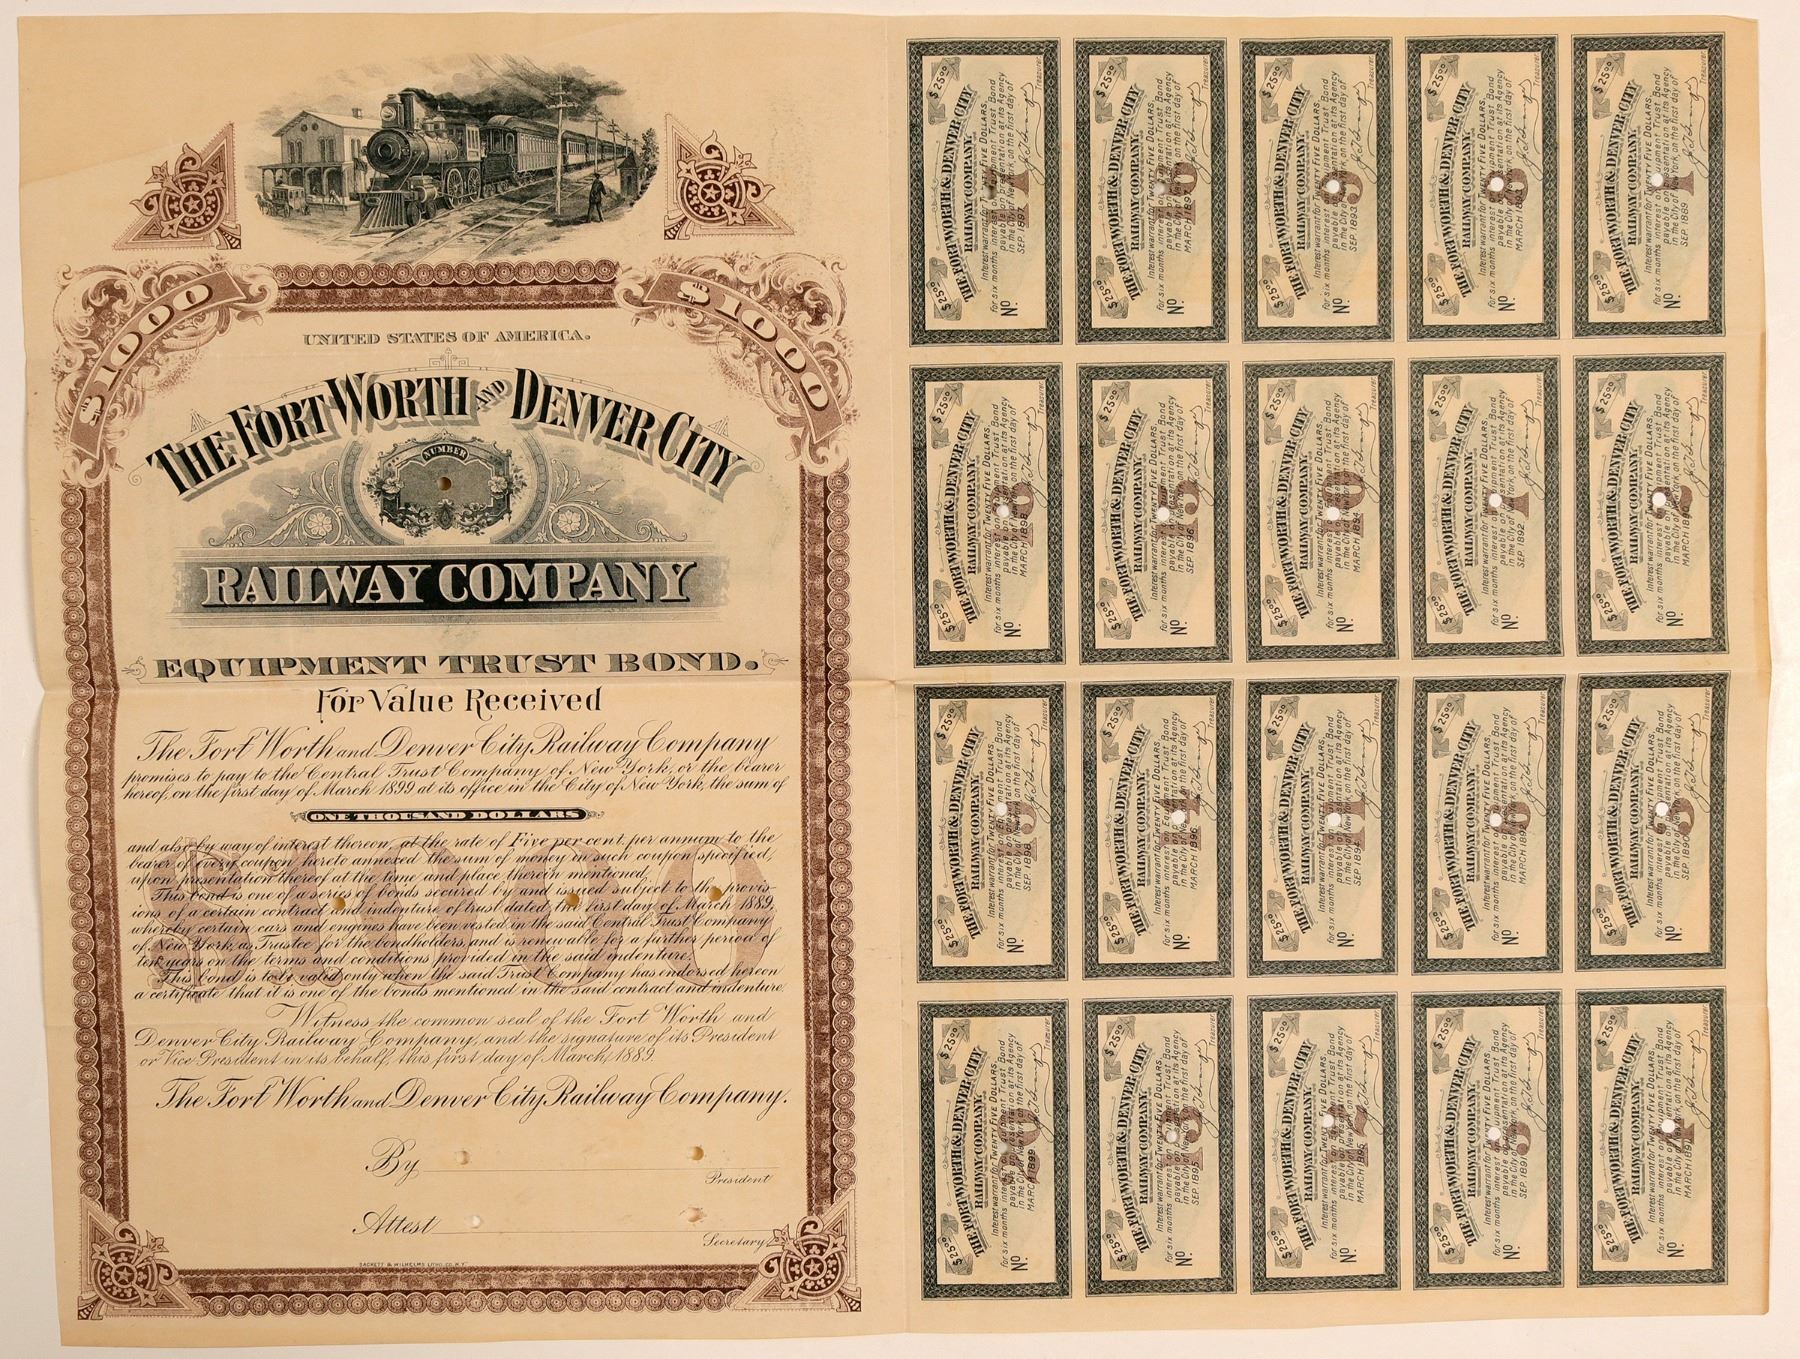 $1000
$1000
UNITED STATES OF AMERICA.
THE FORT WORTH AND DENVER CITY
NUMBER
RAILWAY COMPANY
EQUIPMENT TRUST BOND.
For Value Received
The Fort Worth and Denver City Railway Company
promises to pay to the Central Trust Company of New York, or the bearer
hereof, on the first day of March 1899 at its office in the City of New York, the sum of
ONE THOUSAND DOLLARS
and also by way of interest thereon, at the rate of Five per cent. per annum to the
bearer of every coupon hereto annexed the sum of money in such coupon specified,
upon presentation thereof at the time and place therein mentioned.
This bond is one of a series of bonds secured by and issued subject to the provis-
ions of a certain contract and indenture of trust dated the first day of March 1889,
whereby certain cars and engines have been vested in the said Central Trust Company
of New York, as Trustee for the bondholders, and is renewable for a further period of
ten years on the terms and conditions provided in the said indenture.
This bond is to be valid only when the said Trust Company has endorsed hereon
a certificate that it is one of the bonds mentioned in the said contract and indenture.
$1000
Witness the common seal of the Fort Worth and
Denver City Railway Company, and the signature of its President
or Vice President in its behalf, this first day of March, 1889.
The Fort Worth and Denver City Railway Company.
By
President
Attest
Secretary
SACKETT & WILHELMS LITHO. CO. N.Y.
$25.00 $25.00
THE FORT WORTH & DENVER CITY
RAILWAY COMPANY.
Interest warrant for TWENTY FIVE DOLLARS.
for six months interest on Equipment Trust Bond
payable on presentation at its Agency
in the City of New York on the first day of
SEP. 1897
No.
Treasurer.
$25.00 $25.00
THE FORT WORTH & DENVER CITY
RAILWAY COMPANY.
Interest warrant for TWENTY FIVE DOLLARS.
for six months interest on Equipment Trust Bond
payable on presentation at its Agency
in the City of New York on the first day of
MARCH 1897
No.
Treasurer.
$25.00 $25.00
THE FORT WORTH & DENVER CITY
RAILWAY COMPANY.
Interest warrant for TWENTY FIVE DOLLARS.
for six months interest on Equipment Trust Bond
payable on presentation at its Agency
in the City of New York on the first day of
SEP. 1893
No.
Treasurer.
9
$25.00 $25.00
THE FORT WORTH & DENVER CITY
RAILWAY COMPANY.
Interest warrant for TWENTY FIVE DOLLARS.
for six months interest on Equipment Trust Bond
payable on presentation at its Agency
in the City of New York on the first day of
MARCH 1893
No.
Treasurer.
8
$25.00 $25.00
THE FORT WORTH & DENVER CITY
RAILWAY COMPANY.
Interest warrant for TWENTY FIVE DOLLARS.
for six months interest on Equipment Trust Bond
payable on presentation at its Agency
in the City of New York on the first day of
SEP. 1889
No.
Treasurer.
1
$25.00 $25.00
THE FORT WORTH & DENVER CITY
RAILWAY COMPANY.
Interest warrant for TWENTY FIVE DOLLARS.
for six months interest on Equipment Trust Bond
payable on presentation at its Agency
in the City of New York on the first day of
MARCH 1898
No.
Treasurer.
18
$25.00 $25.00
THE FORT WORTH & DENVER CITY
RAILWAY COMPANY.
Interest warrant for TWENTY FIVE DOLLARS.
for six months interest on Equipment Trust Bond
payable on presentation at its Agency
in the City of New York on the first day of
SEP. 1896
No.
Treasurer.
15
$25.00 $25.00
THE FORT WORTH & DENVER CITY
RAILWAY COMPANY.
Interest warrant for TWENTY FIVE DOLLARS.
for six months interest on Equipment Trust Bond
payable on presentation at its Agency
in the City of New York on the first day of
MARCH 1894
No.
Treasurer.
10
$25.00 $25.00
THE FORT WORTH & DENVER CITY
RAILWAY COMPANY.
Interest warrant for TWENTY FIVE DOLLARS.
for six months interest on Equipment Trust Bond
payable on presentation at its Agency
in the City of New York on the first day of
SEP. 1892
No.
Treasurer.
7
$25.00 $25.00
THE FORT WORTH & DENVER CITY
RAILWAY COMPANY.
Interest warrant for TWENTY FIVE DOLLARS.
for six months interest on Equipment Trust Bond
payable on presentation at its Agency
in the City of New York on the first day of
MARCH 1890
No.
Treasurer.
2
$25.00 $25.00
THE FORT WORTH & DENVER CITY
RAILWAY COMPANY.
Interest warrant for TWENTY FIVE DOLLARS.
for six months interest on Equipment Trust Bond
payable on presentation at its Agency
in the City of New York on the first day of
SEP. 1898
No.
Treasurer.
19
$25.00 $25.00
THE FORT WORTH & DENVER CITY
RAILWAY COMPANY.
Interest warrant for TWENTY FIVE DOLLARS.
for six months interest on Equipment Trust Bond
payable on presentation at its Agency
in the City of New York on the first day of
MARCH 1896
No.
Treasurer.
14
$25.00 $25.00
THE FORT WORTH & DENVER CITY
RAILWAY COMPANY.
Interest warrant for TWENTY FIVE DOLLARS.
for six months interest on Equipment Trust Bond
payable on presentation at its Agency
in the City of New York on the first day of
SEP. 1894
No.
Treasurer.
11
$25.00 $25.00
THE FORT WORTH & DENVER CITY
RAILWAY COMPANY.
Interest warrant for TWENTY FIVE DOLLARS.
for six months interest on Equipment Trust Bond
payable on presentation at its Agency
in the City of New York on the first day of
MARCH 1892
No.
Treasurer.
6
$25.00 $25.00
THE FORT WORTH & DENVER CITY
RAILWAY COMPANY.
Interest warrant for TWENTY FIVE DOLLARS.
for six months interest on Equipment Trust Bond
payable on presentation at its Agency
in the City of New York on the first day of
SEP. 1890
No.
Treasurer.
3
$25.00 $25.00
THE FORT WORTH & DENVER CITY
RAILWAY COMPANY.
Interest warrant for TWENTY FIVE DOLLARS.
for six months interest on Equipment Trust Bond
payable on presentation at its Agency
in the City of New York on the first day of
MARCH 1899
No.
Treasurer.
20
$25.00 $25.00
THE FORT WORTH & DENVER CITY
RAILWAY COMPANY.
Interest warrant for TWENTY FIVE DOLLARS.
for six months interest on Equipment Trust Bond
payable on presentation at its Agency
in the City of New York on the first day of
SEP. 1895
No.
Treasurer.
13
$25.00 $25.00
THE FORT WORTH & DENVER CITY
RAILWAY COMPANY.
Interest warrant for TWENTY FIVE DOLLARS.
for six months interest on Equipment Trust Bond
payable on presentation at its Agency
in the City of New York on the first day of
MARCH 1895
No.
Treasurer.
12
$25.00 $25.00
THE FORT WORTH & DENVER CITY
RAILWAY COMPANY.
Interest warrant for TWENTY FIVE DOLLARS.
for six months interest on Equipment Trust Bond
payable on presentation at its Agency
in the City of New York on the first day of
SEP. 1891
No.
Treasurer.
5
$25.00 $25.00
THE FORT WORTH & DENVER CITY
RAILWAY COMPANY.
Interest warrant for TWENTY FIVE DOLLARS.
for six months interest on Equipment Trust Bond
payable on presentation at its Agency
in the City of New York on the first day of
MARCH 1891
No.
Treasurer.
4